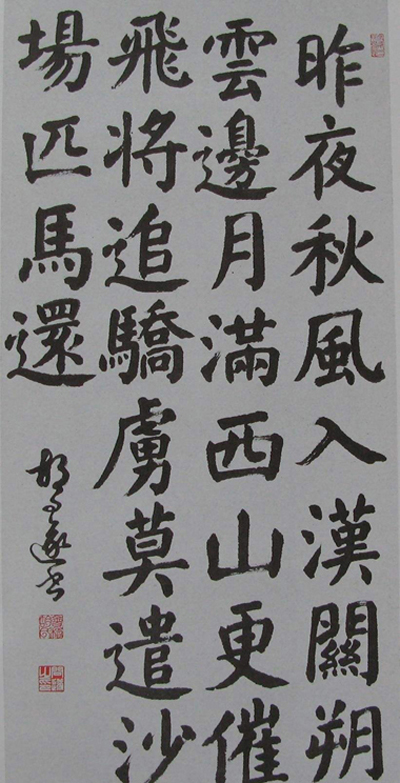 昨夜秋風入漢關朔
雲邊月滿西山更催
飛將追驕虜莫遣沙
場匹馬還
胡问遂书